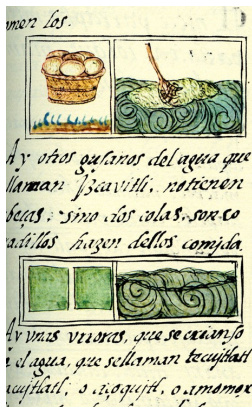 omen los.
Ay otros gusanos del agua que
llaman Yzcavitli, notienen
beças, sino dos colas, son co
adillos hazen dellos comida.
Ay vnas vrroras, que secrian so
el agua, que sellaman tecujtlatl
cujtlatl, o açoqujtl, o amomox